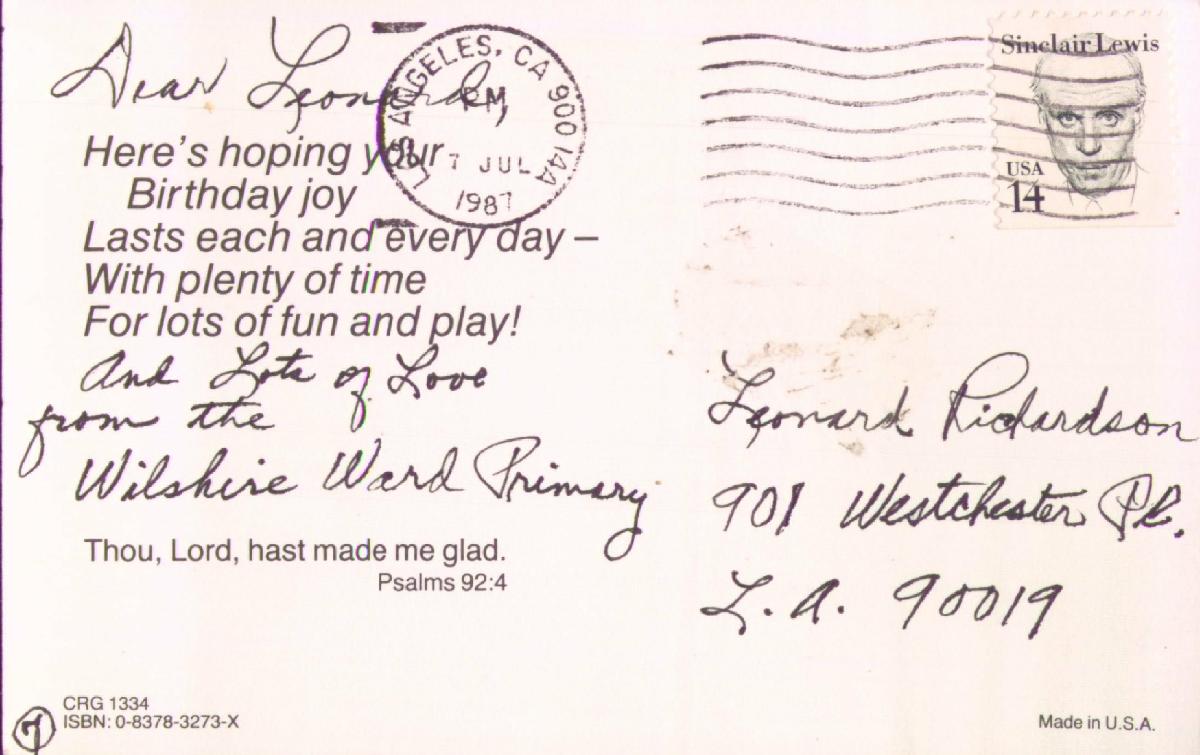 Dear Leonard,
Here's hoping your
Birthday joy
Lasts each and every day –
With plenty of time
For lots of fun and play!
And Lots of Love
from the
Wilshire Ward Primary
Thou, Lord, hast made me glad.
Psalms 92:4
CRG 1334
ISBN: 0-8378-3273-X
7
LOS ANGELES, CA 900 14A
PM
7 JUL
1987
Sinclair Lewis
USA
14
Leonard Richardson
901 Westchester Pl.
L.A. 90019
Made in U.S.A.